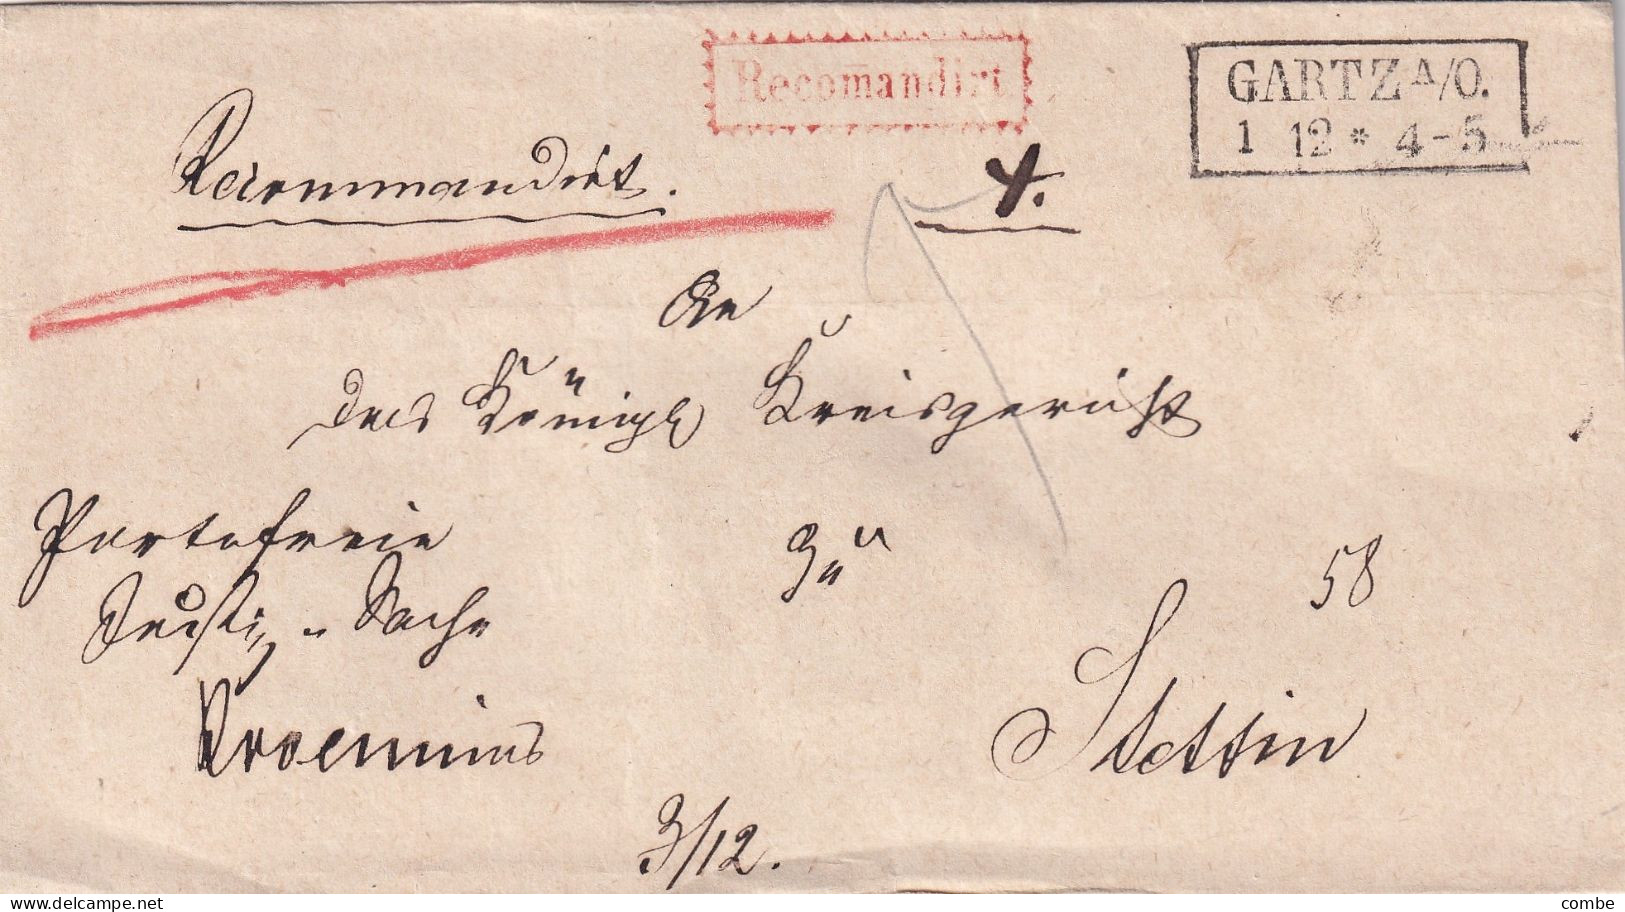 Recomandirt
GARTZ A/O.
1 12 * 4-5
Recommandirt.
4.
An
das Königl Kreisgericht
Portofreie
Justiz-Sache
zu
58
Stettin
3/12.
delcampe.net
combe